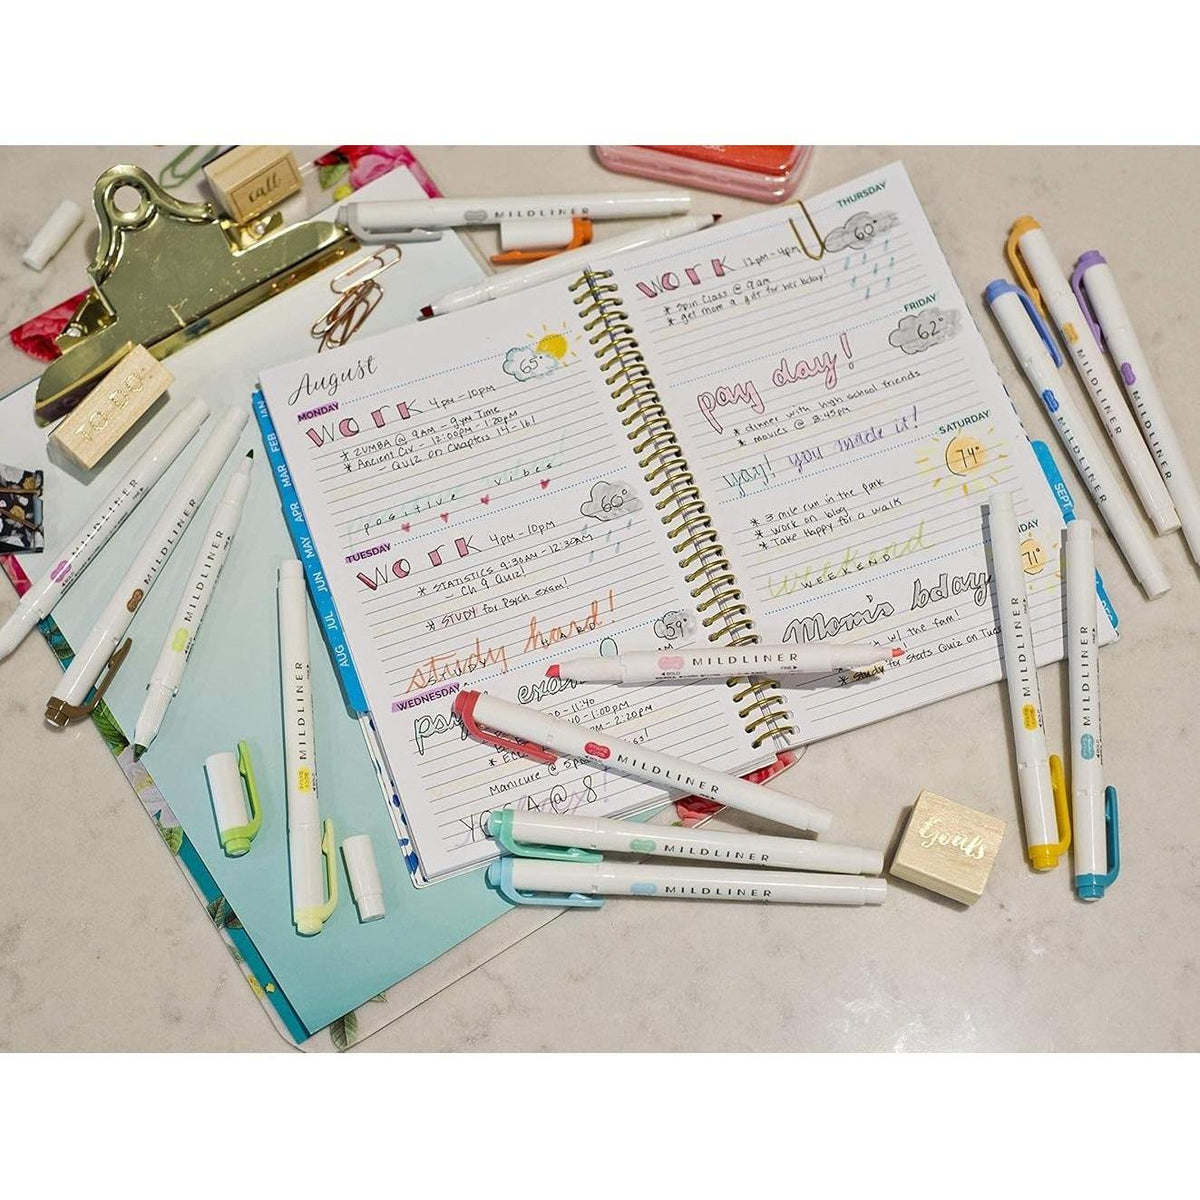 call
TO DO
August
JAN
FEB
MAR
APR
MAY
JUN
JUL
AUG
MONDAY
WORK 4pm - 10pm
65°
* ZUMBA @ 9AM - gym Time
* Ancient Civ - 12:00pm - 1:20pm
- Quiz on Chapters 14 - 16!
positive vibes
TUESDAY
WORK 4pm - 10pm
66°
* STATISTICS 9:30AM - 12:30AM
- Ch 9 Quiz!
* STUDY for Psych exam!
study hard!
STUDY HARD
WEDNESDAY
59°
Manicure @
YOGA @ 8
THURSDAY
WORK 12pm - 4pm
60°
* Spin Class @ 9am
* get mom a gift for her bday!
FRIDAY
62°
pay day!
* dinner with high school friends
* movies @ 8:45pm
yay! you made it!
SATURDAY
74°
* 3 mile run in the park
* work on blog
* Take Happy for a walk
weekend
WEEKEND
71°
Mom's bday
w/ the fam!
* Study for Stats Quiz on Tues
SEPT
Goals
MILDLINER
MILDLINER
MILDLINER
MILDLINER
MILDLINER
MILDLINER
MILDLINER
MILDLINER
MILDLINER
MILDLINER
MILDLINER
MILDLINER
MILDLINER
MILDLINER